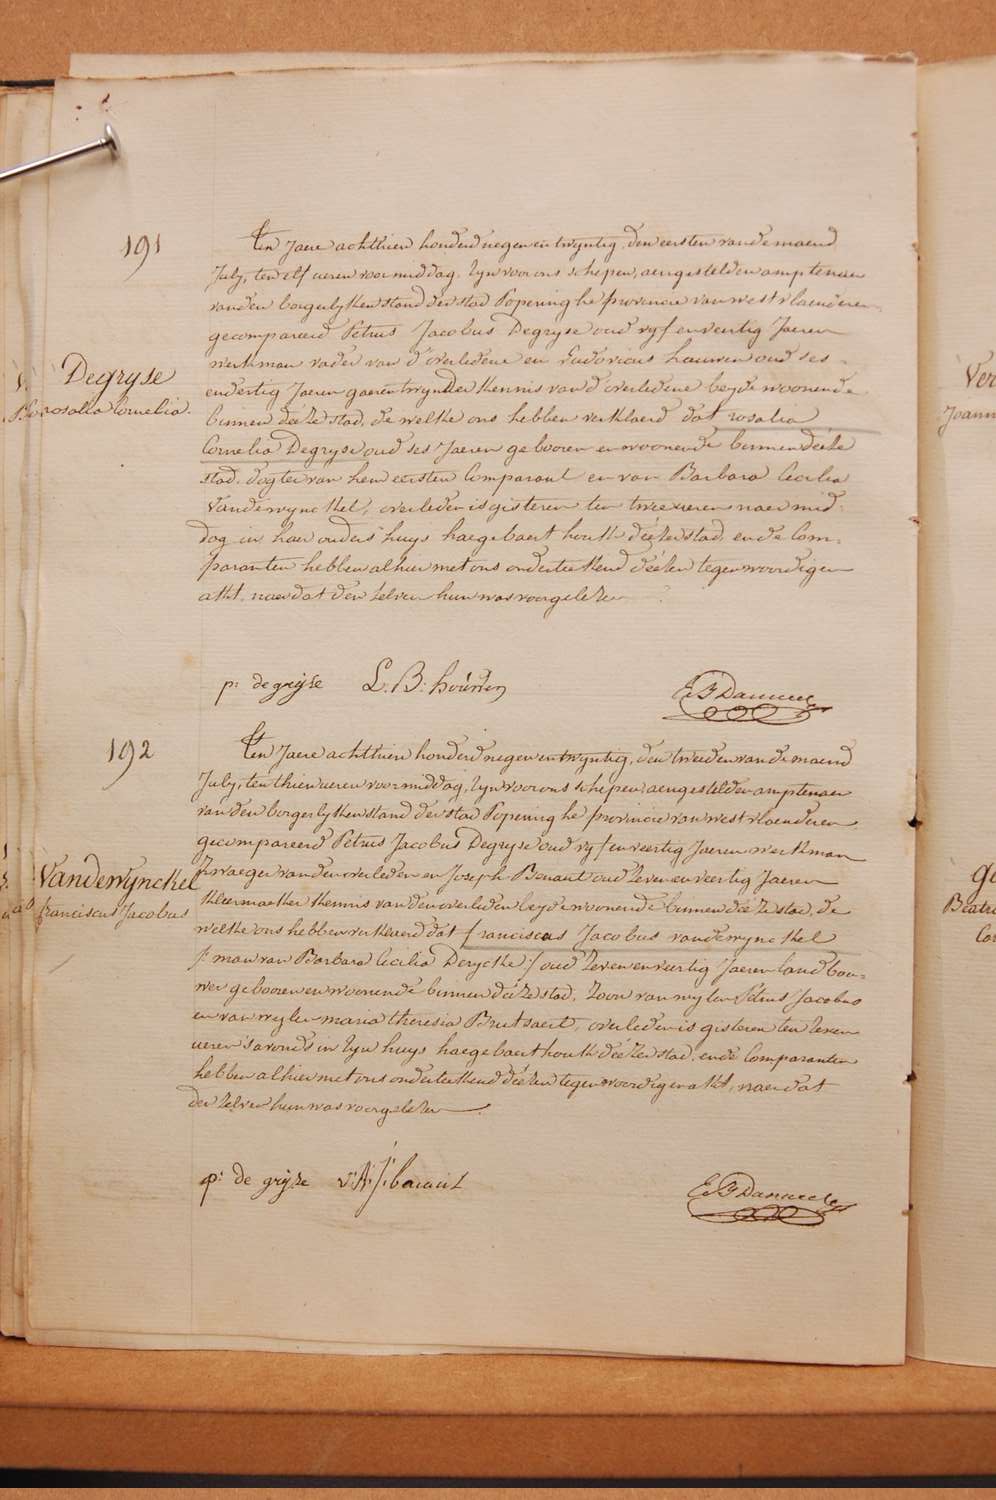 191
Ten Jaere achthien honderd negen en twyntig, den eersten vande maend
July, ten elf ueren voormiddag, Zyn voor ons schepen, aengestelden amptenaer
van den borgerlyken stand der stad Poperinghe provincie van west vlaenderen
gecompareerd Petrus Jacobus Degryse oud vyf en veertig Jaeren
werkman vader van d'overledene en Ludovicus houwen oud ses-
endertig Jaeren kennis van d'overledene beyde woonende
binnen déeze stad, de welke ons hebben verklaerd dat rosalia
Cornelia Degryse oud ses Jaeren geboren en woonende binnen déeze
stad, dogter van hem eersten Comparant en van Barbara Cecilia
Vandewynckel, overleden is gisteren ten twee ueren naermid-
dag in haer ouders huys haegebaert houk déézer stad, ende Com-
paranten hebben alhier met ons onderteekend déézen tegenwoordigen
akt, naer dat den zelven hun was voorgelezen
Degryse
rosalia Cornelia.
p: de gryse L. B: houwen E F Dannee
192
Ten Jaere achthien honderd negen en twyntig, den tweeden van de maend
July, ten thien ueren voormiddag, Zyn voor ons schepen, aengestelden amptenaer
van den borgerlyken stand der stad Poperinghe provincie van west vlaenderen
gecompareerd Petrus Jacobus Degryse oud vyf en veertig Jaeren werkman
Zwaeger van den overleden en Joseph oud Zeven en veertig Jaeren
kleermaeker kennis van den overleden beyde woonende binnen déeze stad, de
welke ons hebben verklaerd dat franciscus Jacobus vandewynckel
/: man van Barbara Cecilia Derycke :/ oud Zeven en veertig Jaeren landbou-
wer geboren en woonende binnen déeze stad, Zoon van wylen Petrus Jacobus
en van wylen maria theresia Brutsaert, overleden is gisteren ten Zeven
ueren 's avonds in Zyn huys haegebaert houk déézer stad, ende Comparanten
hebben alhier met ons onderteekend déézen tegenwoordigen akt, naer dat
den zelven hun was voorgelezen.
Vandewynckel
franciscus Jacobus
p: de gryse E F Dannee
Ver
Joann
Beatri